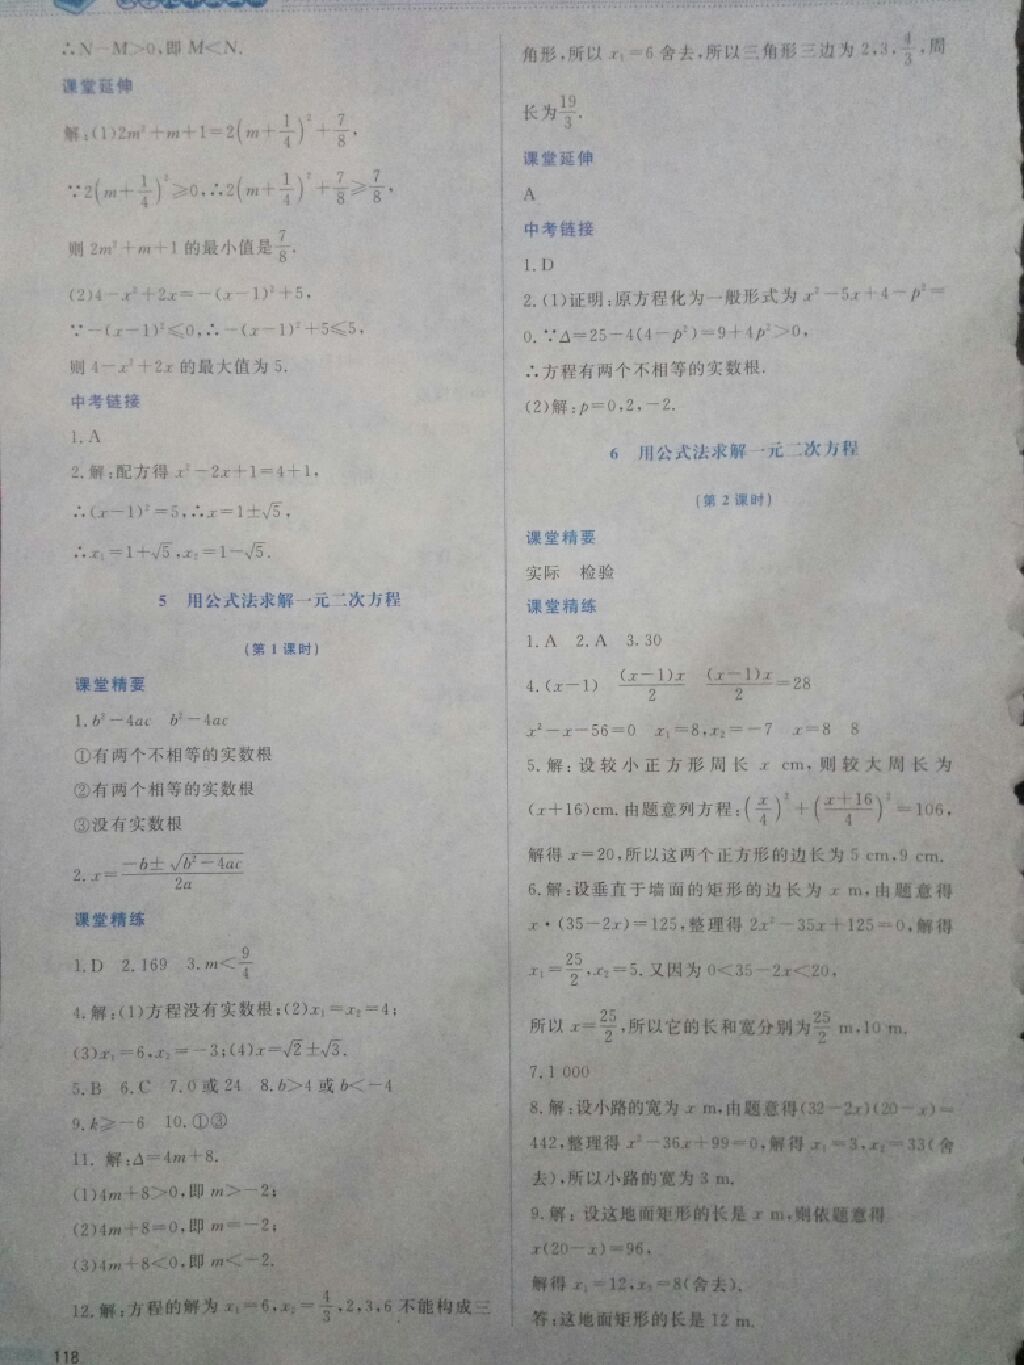 ∴N－M>0,即 M<N.
课堂延伸
解:(1)2m²+m+1=2(m+1/4)²+7/8,
∵2(m+1/4)²≥0,∴2(m+1/4)²+7/8≥7/8,
则 2m²+m+1 的最小值是7/8.
(2)4－x²+2x=－(x－1)²+5,
∵－(x－1)²≤0,∴－(x－1)²+5≤5,
则 4－x²+2x 的最大值为 5.
中考链接
1.A
2.解:配方得 x²－2x+1=4+1,
∴(x－1)²=5,∴x=1±√5,
∴x₁=1+√5,x₂=1－√5.
5 用公式法求解一元二次方程
(第 1 课时)
课堂精要
1.b²－4ac b²－4ac
①有两个不相等的实数根
②有两个相等的实数根
③没有实数根
2.x=(－b±√(b²－4ac))/2a
课堂精练
1.D 2.169 3.m<9/4
4.解:(1)方程没有实数根;(2)x₁=x₂=4;
(3)x₁=6,x₂=－3;(4)x=√2±√3.
5.B 6.C 7.0 或 24 8.b>4 或 b<－4
9.k≥－6 10.①③
11. 解:Δ=4m+8.
(1)4m+8>0,即 m>－2;
(2)4m+8=0,即 m=－2;
(3)4m+8<0,即 m<－2.
12.解:方程的解为 x₁=6,x₂=4/3,2,3,6 不能构成三
118
角形,所以 x₁=6 舍去,所以三角形三边为 2,3,4/3,周
长为19/3.
课堂延伸
A
中考链接
1.D
2.(1)证明:原方程化为一般形式为 x²－5x+4－p²=
0.∵Δ=25－4(4－p²)=9+4p²>0,
∴方程有两个不相等的实数根.
(2)解:p=0,2,－2.
6 用公式法求解一元二次方程
(第 2 课时)
课堂精要
实际 检验
课堂精练
1.A 2.A 3.30
4.(x－1) (x－1)x/2 (x－1)x/2=28
x²－x－56=0 x₁=8,x₂=－7 x=8 8
5.解:设较小正方形周长 x cm,则较大周长为
(x+16)cm.由题意列方程:(x/4)²+((x+16)/4)²=106,
解得 x=20,所以这两个正方形的边长为 5 cm,9 cm.
6.解:设垂直于墙面的矩形的边长为 x m,由题意得
x·(35－2x)=125,整理得 2x²－35x+125=0,解得
x₁=25/2,x₂=5.又因为 0<35－2x<20,
所以 x=25/2,所以它的长和宽分别为25/2 m,10 m.
7.1 000
8.解:设小路的宽为 x m,由题意得(32－2x)(20－x)=
442,整理得 x²－36x+99=0,解得 x₁=3,x₂=33(舍
去),所以小路的宽为 3 m.
9.解:设这地面矩形的长是 x m,则依题意得
x(20－x)=96,
解得 x₁=12,x₂=8(舍去).
答:这地面矩形的长是 12 m.